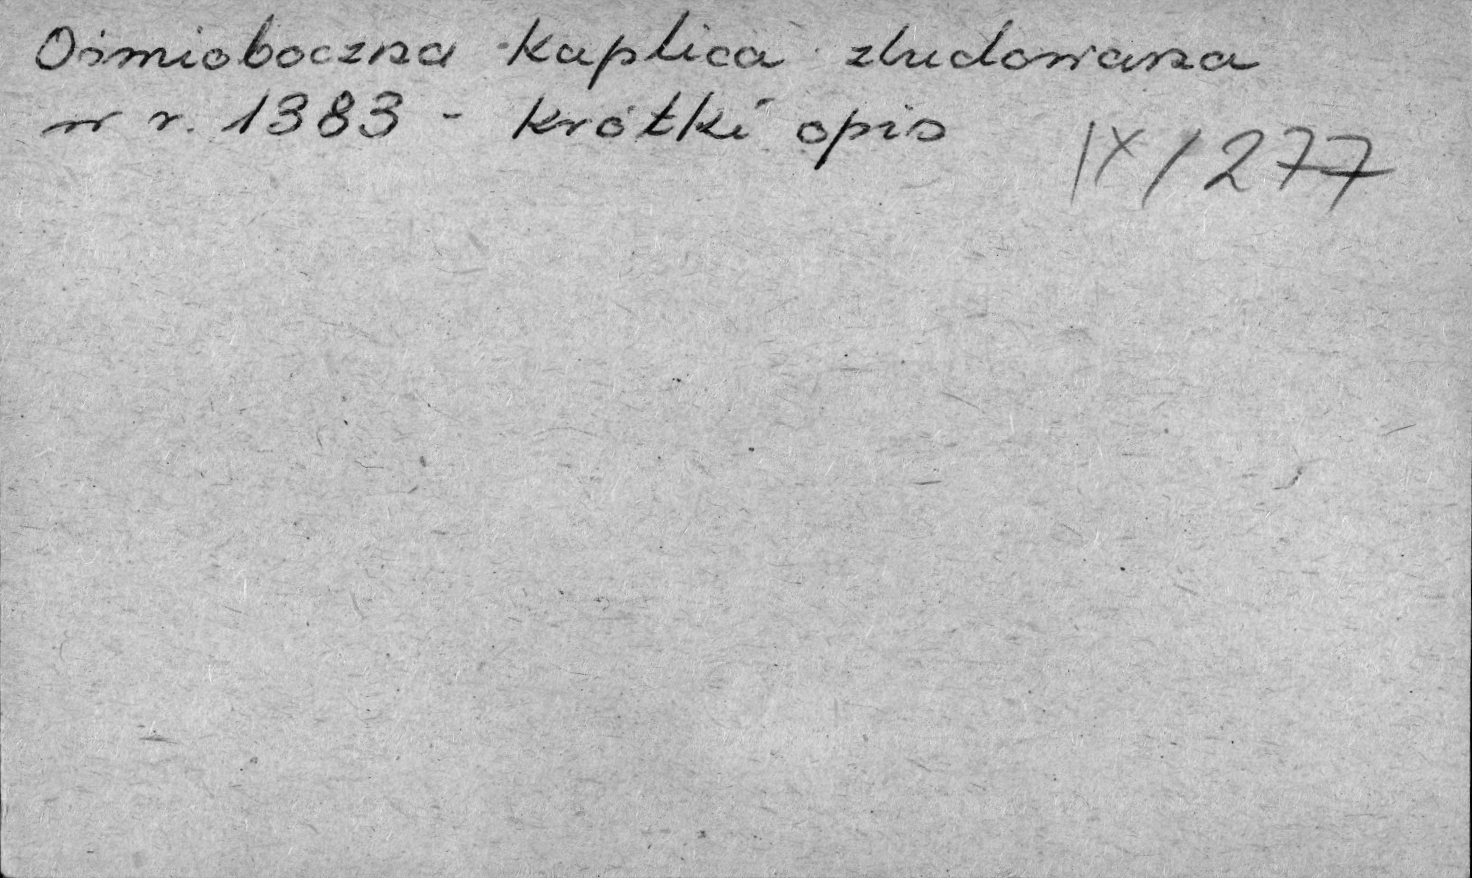 Ośmioboczna kaplica zbudowana
w r. 1383 - krótki opis
IX/277